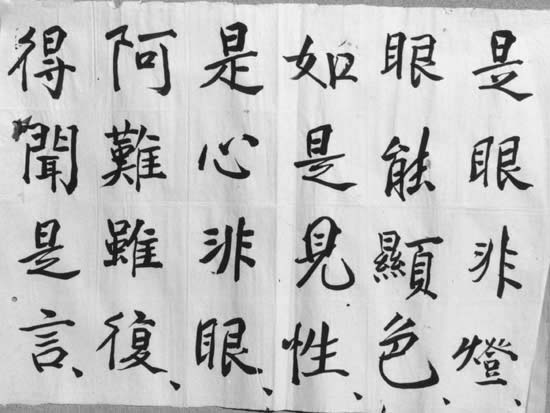 是眼非燈、
眼能顯色、
如是見性、
是心非眼、
阿難雖復、
得聞是言、